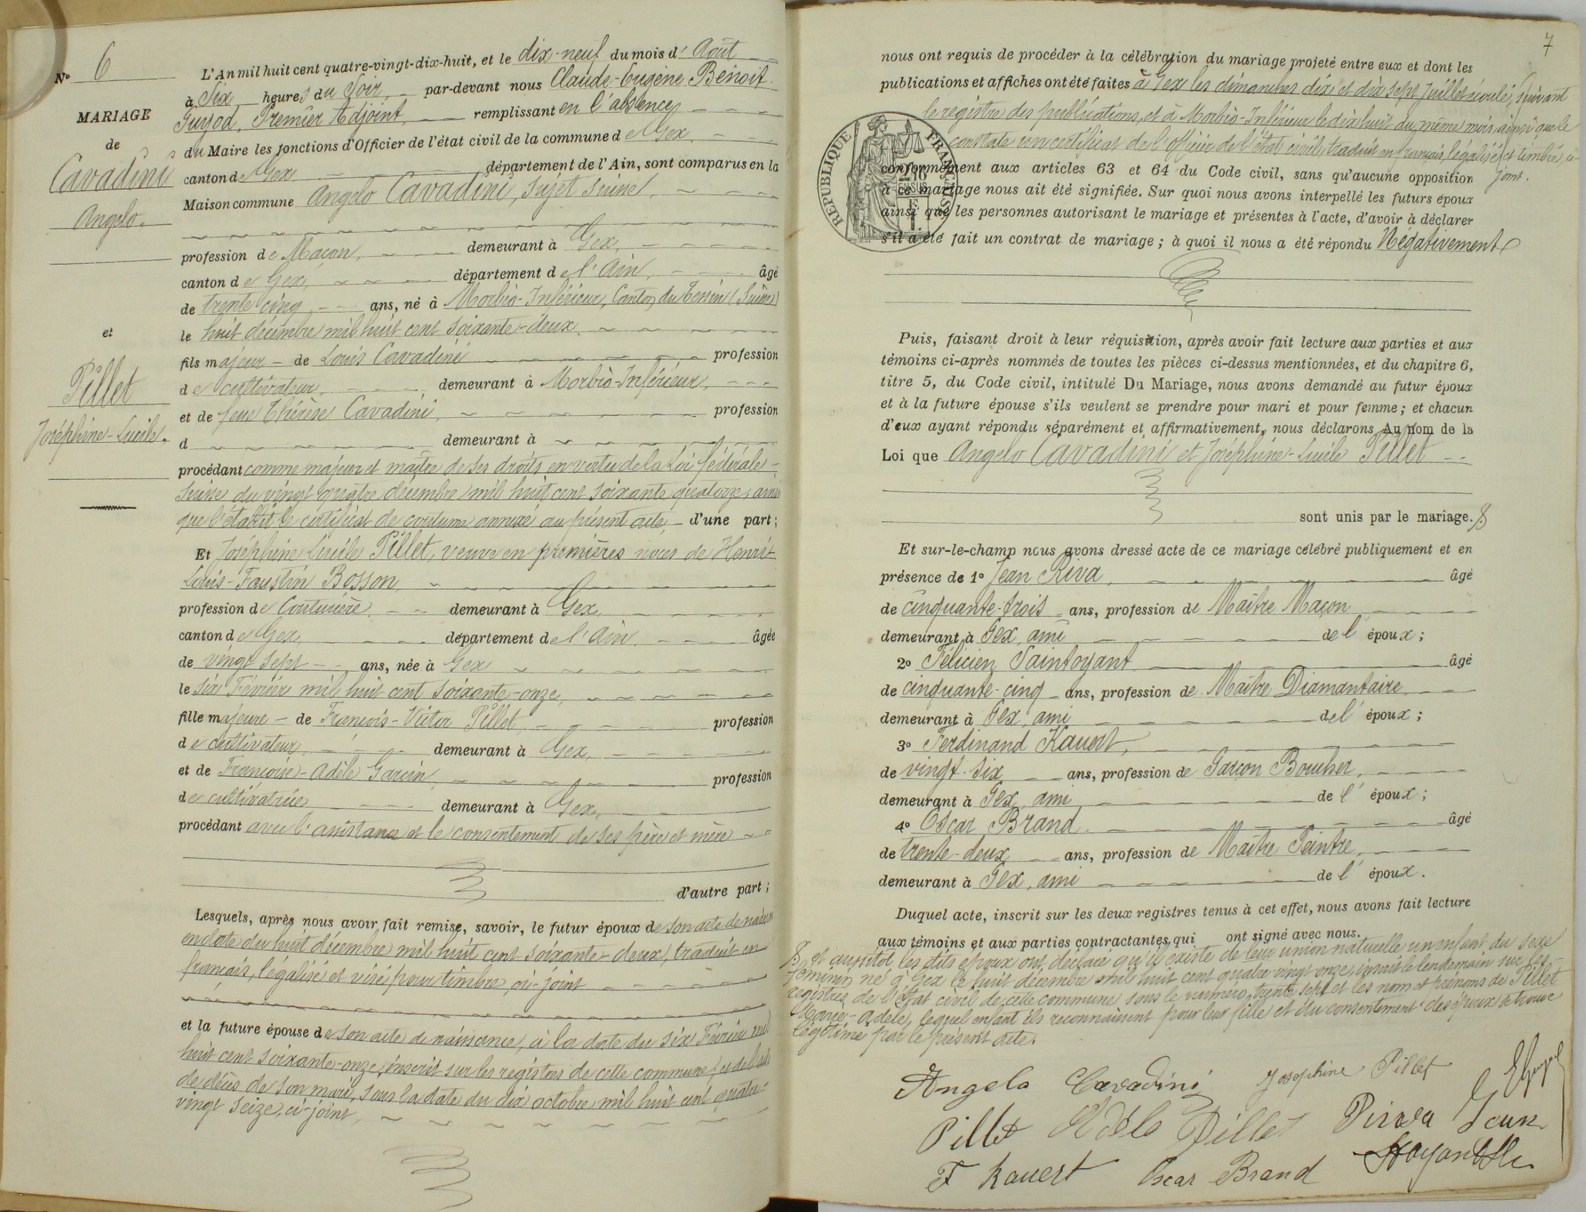 N° 6
MARIAGE
de
Cavadini
Angelo.
et
Pillet
Joséphine-Lucile.
L'An mil huit cent quatre-vingt-dix-huit, et le dix-neuf du mois d'Août
à Six heures du Soir, par-devant nous Claude-Eugène Benoit
Guyod, Premier Adjoint, remplissant en l'absence
du Maire les fonctions d'Officier de l'état civil de la commune de Gex,
canton de Gex département de l'Ain, sont comparus en la
Maison commune Angelo Cavadini, Sujet Suisse,
profession de Maçon, demeurant à Gex,
canton de Gex, département de l'Ain, âgé
de trente cinq ans, né à Morbio-Inférieur, Canton du Tessin (Suisse)
le huit décembre mil huit cent soixante-deux,
fils majeur de Louis Cavadini profession
de cultivateur, demeurant à Morbio-Inférieur,
et de feue Thérèse Cavadini, profession
d demeurant à
procédant comme majeur et maître de ses droits en vertu de la Loi fédérale
Suisse du vingt quatre décembre mil huit cent soixante quatorze, ainsi
que l'établit le certificat de coutume annexé au présent acte, d'une part;
Et Joséphine Lucile Pillet, veuve en premières noces de Henri-
Louis-Faustin Bosson,
profession de Couturière, demeurant à Gex,
canton de Gex, département de l'Ain, âgée
de vingt sept ans, née à Gex
le six Février mil huit cent soixante-onze,
fille majeure de François-Victor Pillet, profession
de cultivateur, demeurant à Gex,
et de Françoise-Adèle Garcin, profession
de cultivatrice demeurant à Gex,
procédant avec l'assistance et le consentement de ses père et mère
d'autre part;
Lesquels, après nous avoir fait remise, savoir, le futur époux de son acte de naissance
en date du huit décembre mil huit cent soixante-deux, traduit en
français, légalisé et visé pour timbre, ci-joint
et la future épouse de son acte de naissance, à la date du six Février mil
huit cent soixante-onze, inscrit sur les registres de cette commune, et de l'acte
de décès de son mari, sous la date du dix octobre mil huit cent quatre-
vingt seize, ci-joint,
7
nous ont requis de procéder à la célébration du mariage projeté entre eux et dont les
publications et affiches ont été faites à Gex les dimanches dix et dix sept Juillet écoulé, suivant
le registre des publications, et à Morbio-Inférieur le dix huit du même mois, ainsi que le
constate un certificat de l'officier de l'état civil, traduit en français, légalisé et timbré ci-
joint.
RÉPUBLIQUE FRANÇAISE
conformément aux articles 63 et 64 du Code civil, sans qu'aucune opposition
à ce mariage nous ait été signifiée. Sur quoi nous avons interpellé les futurs époux
ainsi que les personnes autorisant le mariage et présentes à l'acte, d'avoir à déclarer
s'il a été fait un contrat de mariage; à quoi il nous a été répondu Négativement
Puis, faisant droit à leur réquisition, après avoir fait lecture aux parties et aux
témoins ci-après nommés de toutes les pièces ci-dessus mentionnées, et du chapitre 6,
titre 5, du Code civil, intitulé Du Mariage, nous avons demandé au futur époux
et à la future épouse s'ils veulent se prendre pour mari et pour femme; et chacun
d'eux ayant répondu séparément et affirmativement, nous déclarons au nom de la
Loi que Angelo Cavadini et Joséphine-Lucile Pillet
sont unis par le mariage.
Et sur-le-champ nous avons dressé acte de ce mariage célébré publiquement et en
présence de 1° Jean Riva, âgé
de cinquante-trois ans, profession de Maître Maçon
demeurant à Gex, ami de l'époux;
2° Félicien Saintoyant âgé
de cinquante-cinq ans, profession de Maître Diamantaire
demeurant à Gex, ami de l'époux;
3° Ferdinand Kauert,
de vingt-six ans, profession de Garçon Boucher,
demeurant à Gex, ami de l'époux;
4° Oscar Brand âgé
de trente-deux ans, profession de Maître Peintre,
demeurant à Gex, ami de l'époux.
Duquel acte, inscrit sur les deux registres tenus à cet effet, nous avons fait lecture
aux témoins et aux parties contractantes, qui ont signé avec nous.
et aussitôt les dits époux ont déclaré qu'il existe de leur union naturelle un enfant du sexe
féminin né à Gex le huit décembre mil huit cent quatre vingt onze, inscrit le lendemain sur les
registres de l'Etat civil de cette commune sous le numéro trente sept et les nom et prénoms de Pillet
Marie-Adèle, lequel enfant ils reconnaissent pour leur fille et du consentement des époux se trouve
légitimé par le présent acte.
Angelo Cavadini Josephine Pillet
Pillet Adèle Pillet Piriva Jean
F Kauert Oscar Brand